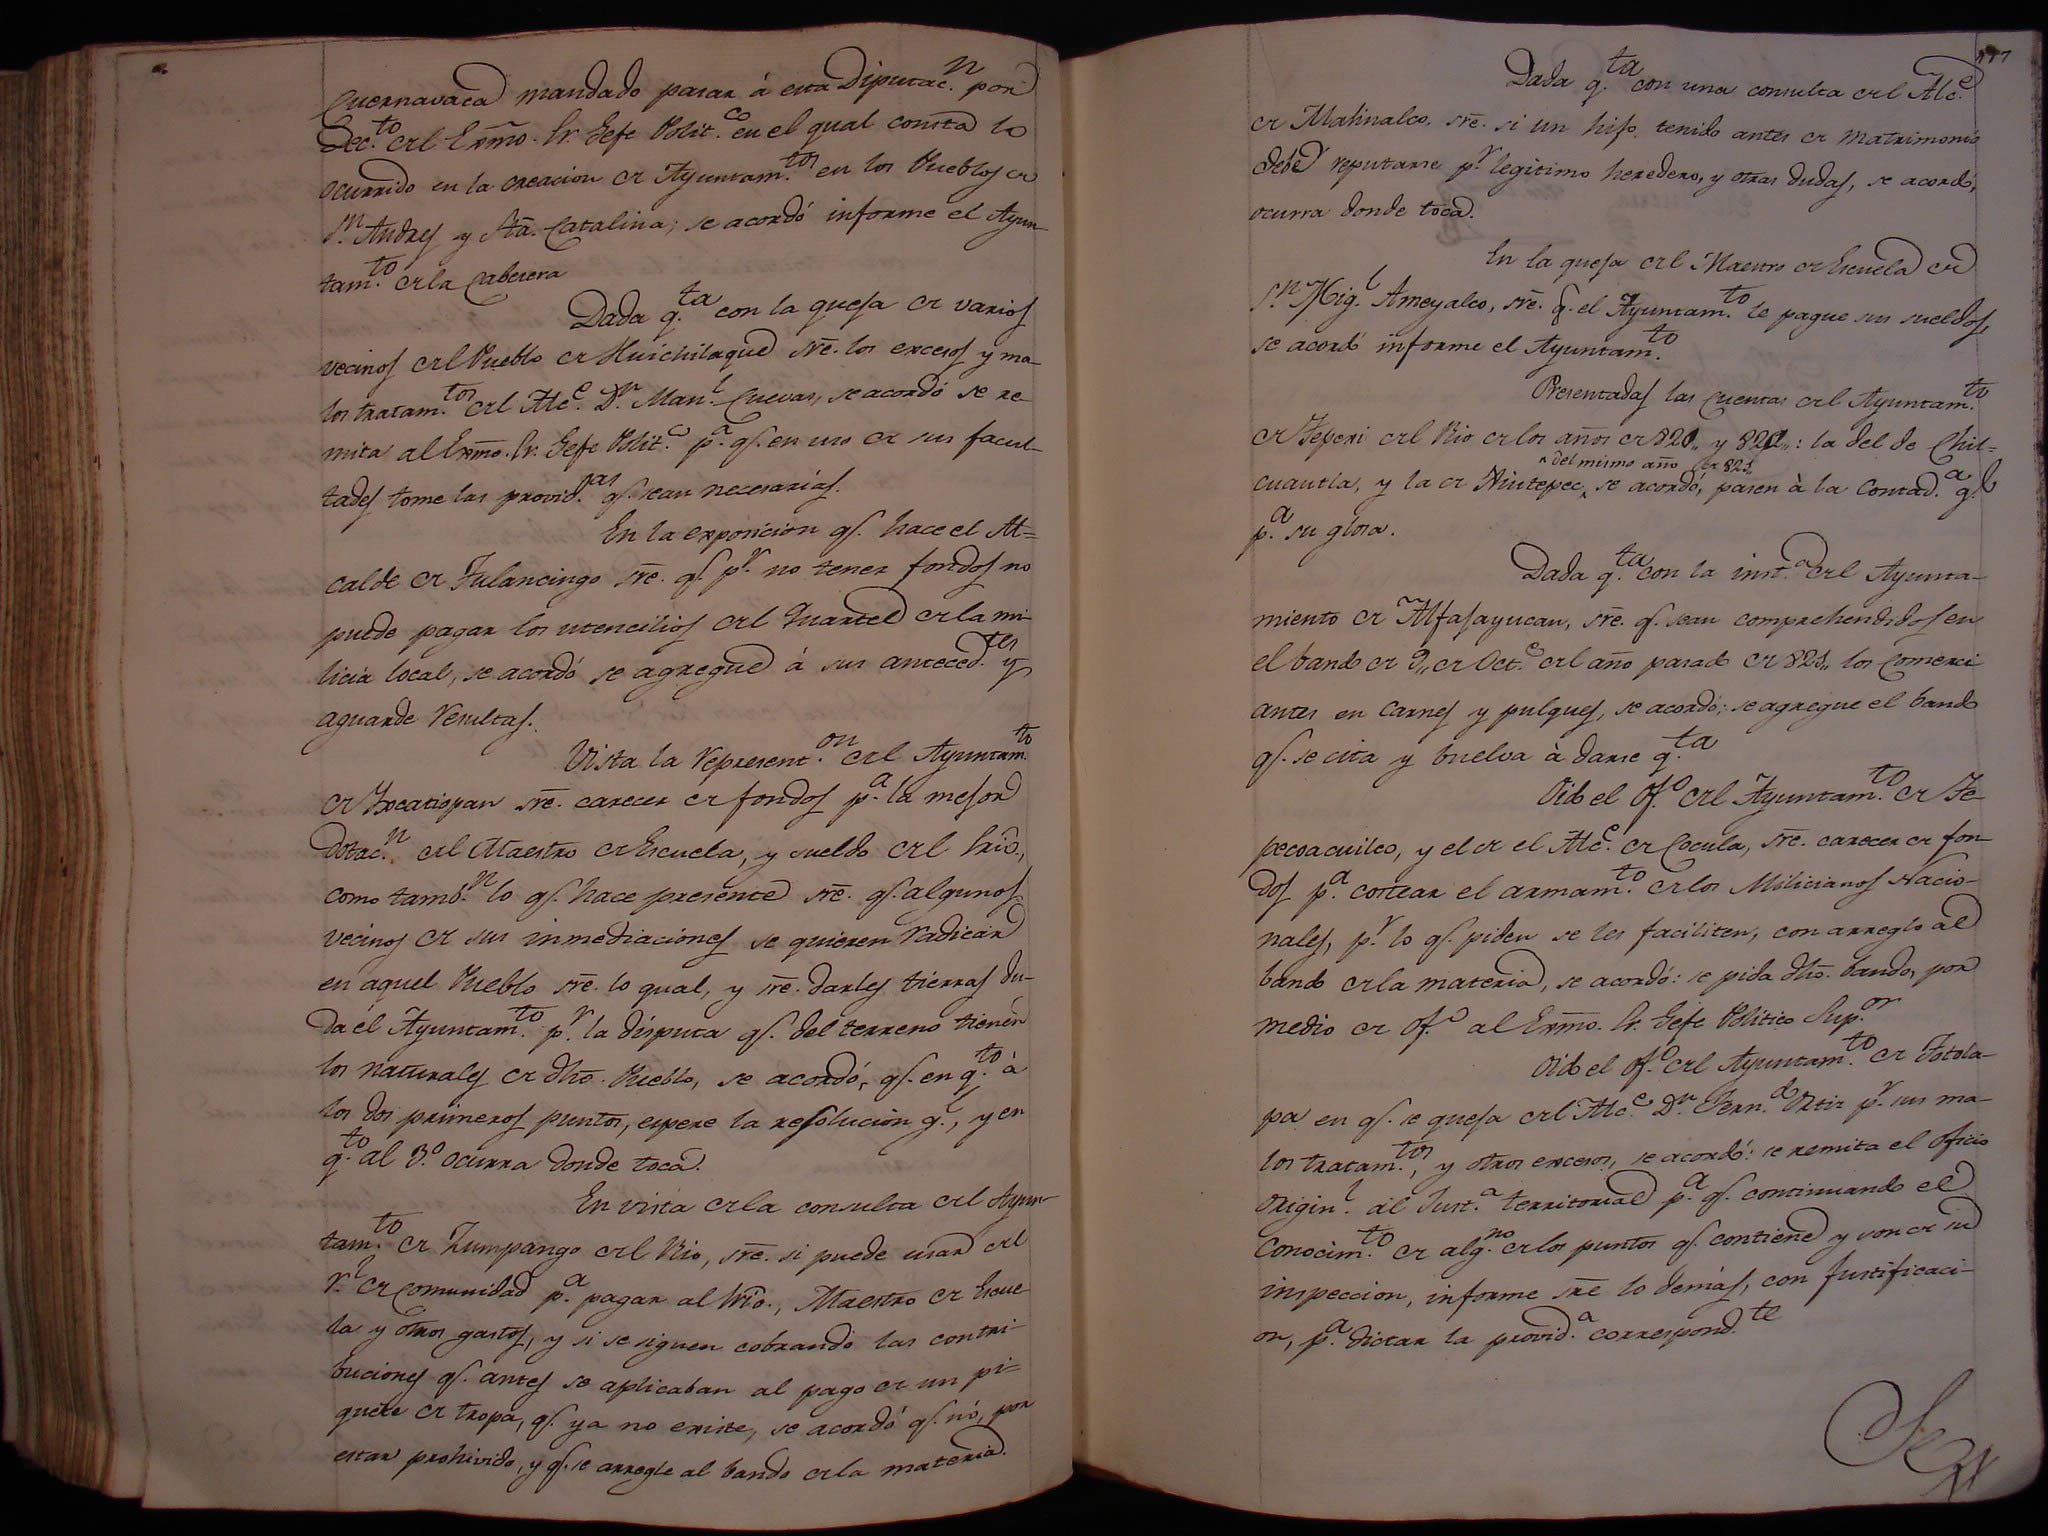 Cuernavaca mandado pasar á esta Diputac.n por
Dec.to del Exmo. Sr. Gefe Polit.co en el qual consta lo
ocurrido en la creacion de Ayuntam.tos en los Pueblos de
S.n Andres y Sta. Catalina; se acordó informe el Ayun-
tam.to de la Cabesera
Dada q.ta con la queja de varios
vecinos del Pueblo de Huichilaque sre. los excesos y ma-
los tratam.tos del Alc.e D.n Man.l Cuevas, se acordó se re-
mita al Exmo. Sr. Gefe Polit.c p.a q.e en uso de sus facul-
tades tome las provid.as q.e sean necesarias.
En la exposicion q.e hace el Al=
calde de Tulancingo sre. q.e p.r no tener fondos no
puede pagar los utencilios del Quartel de la mi-
licia local, se acordó se agregue á sus anteced.tes y
aguarde resultas.
Vista la represent.on del Ayuntam.to
de Yxcatiopan sre. carecer de fondos p.a la mejor
dotac.n del Maestro de Escuela, y sueldo del Srio.,
como tamb.n lo q.e hace presente sre. q.e algunos
vecinos de sus inmediaciones se quieren radicar
en aquel Pueblo sre. lo qual, y sre. darles tierras du-
da él Ayuntam.to p.r la disputa q.e del terreno tienen
los naturales de dho. Pueblo, se acordó, q.e en q.to à
los dos primeros puntos, espere la resolucion g.l, y en
q.to al 3.o ocurra donde toca.
En vista de la consulta del Ayun-
tam.to de Zumpango del Rio, sre. si puede usar del
r.l de comunidad p.a pagar al Srio., Maestro de Escue
la y otros gastos, y si se siguen cobrando las contri-
buciones q.e antes se aplicaban al pago de un pi-
quete de tropa, q.e ya no existe, se acordó q.e nó, por
estar prohivido, y q.e se arregle al bando de la materia.
Dada q.ta con una consulta del Alc.e
de Malinalco, sre. si un hijo, tenido antes de Matrimonio
debe reputarse p.r legitimo heredero, y otras dudas, se acordó,
ocurra donde toca.
En la queja del Maestro de Escuela de
S.n Mig.l Ameyalco, sre. q. el Ayuntam.to le pague sus sueldos,
se acordó informe el Ayuntam.to
Presentadas las cuentas del Ayuntam.to
de Tepexi del Rio de los años de 820,, y 821,,: la del de Chil-
^ del mismo año de 821,,
cuautla, y la de Xiutepec^ se acordó, pasen à la Contad.a g.l
p.a su glosa.
Dada q.ta con la inst.a del Ayunta-
miento de Alfajayucan, sre. q.e sean comprehendidos en
el bando de 9,, de Oct.e del año pasado de 821,, los Comerci
antes en Carnes y pulques, se acordó: se agregue el bando
q.e se cita y buelva à darse q.ta
Oido el Of.o del Ayuntam.to de Te-
pecoacuilco, y el de el Alc.e de Cocula, sre. carecer de fon-
dos p.a costear el armam.to de los Milicianos Nacio-
nales, p.r lo q.e piden se les faciliten, con arreglo al
bando de la materia, se acordó: se pida dho. bando, por
medio de Of.o al Exmo. Sr. Gefe Politico Sup.or
Oido el Of.o del Ayuntam.to de Totola-
pa en q.e se queja del Alc.e D.n Fern.do Ortiz p.r sus ma-
los tratam.tos, y otros excesos, se acordó: se remita el Oficio
Origin.l al Just.a territorial p.a q.e continuando el
Conocim.to de alg.no de los puntos q.e contiene y son de su
inspeccion, informe sre lo demás, con justificaci-
on, p.a dictar la provid.a correspond.te